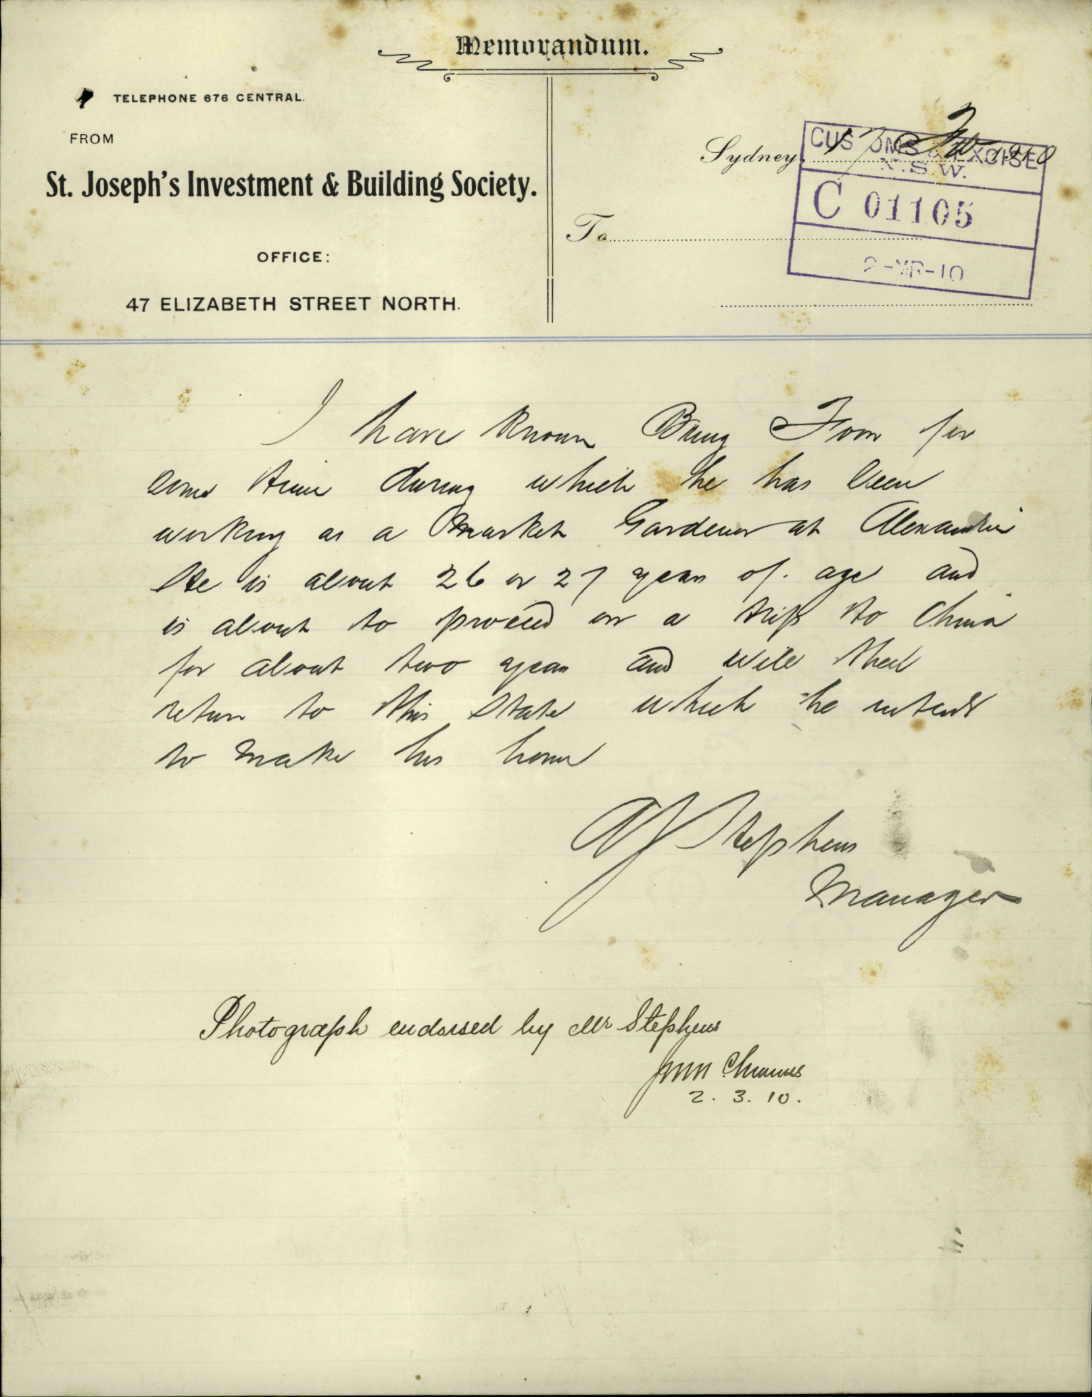 Memorandum.
TELEPHONE 676 CENTRAL.
FROM
St. Joseph's Investment & Building Society.
OFFICE:
47 ELIZABETH STREET NORTH.
Sydney, 17 1910
To
CUSTOMS & EXCISE
N.S.W.
C 01105
2-MR-10
I have known Bing Foon for
some time during which he has been
working as a Market Gardener at Alexandria
He is about 26 or 27 years of age and
is about to proceed on a trip to China
for about two years and will then
return to this State which he intends
to make his home
AJ Stephens
Manager
Photograph endorsed by Mr Stephens
2. 3. 10.